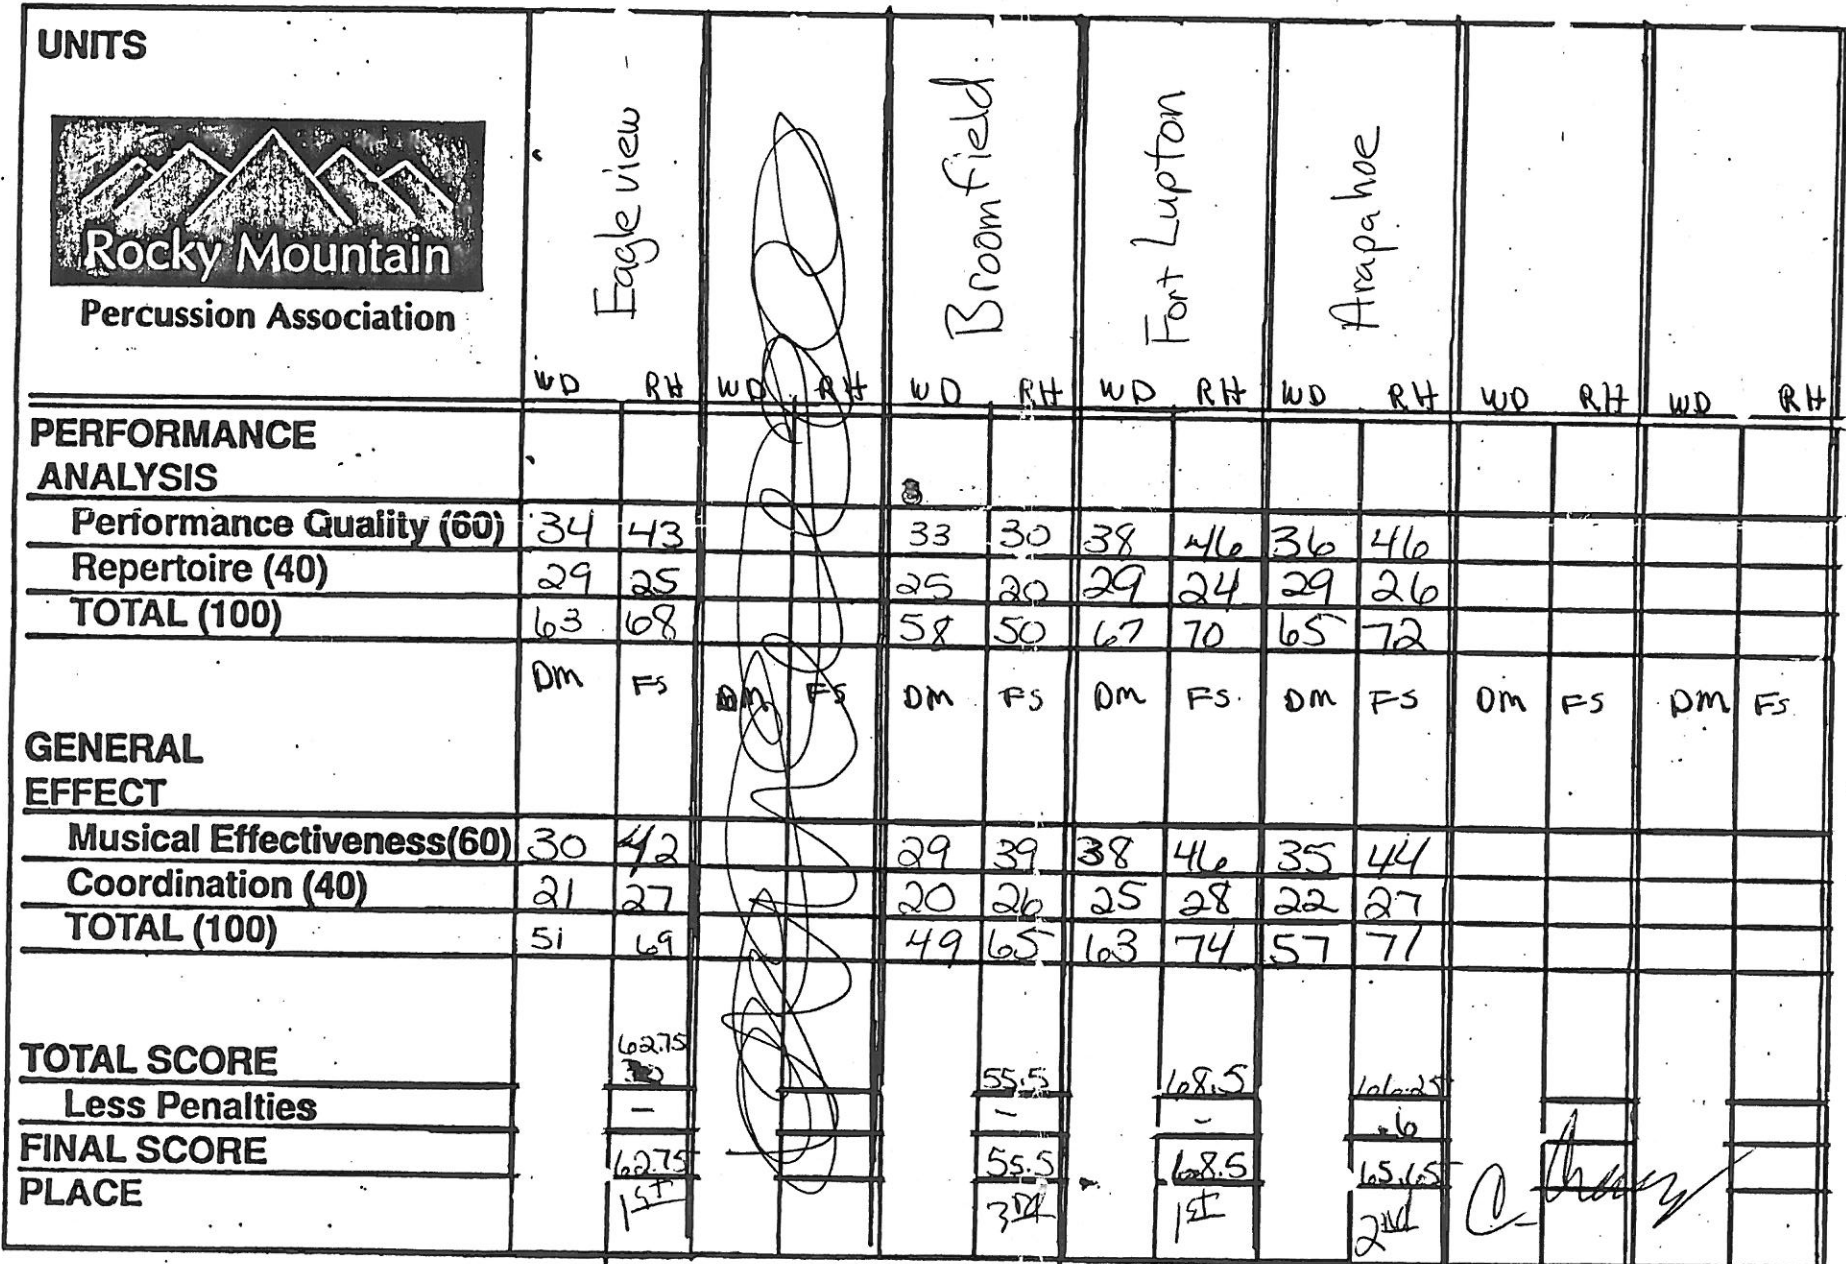 UNITS
Rocky Mountain
Percussion Association
Eagle view Broomfield Fort Lupton Arapahoe
WD RH WD RH WD RH WD RH WD RH WD RH WD RH
PERFORMANCE
ANALYSIS
Performance Quality (60) 34 43 33 30 38 46 36 46
Repertoire (40) 29 25 25 20 29 24 29 26
TOTAL (100) 63 68 58 50 67 70 65 72
DM FS DM FS DM FS DM FS DM FS DM FS DM FS
GENERAL
EFFECT
Musical Effectiveness(60) 30 42 29 39 38 46 35 44
Coordination (40) 21 27 20 26 25 28 22 27
TOTAL (100) 51 69 49 65 63 74 57 71
TOTAL SCORE 62.75 55.5 68.5 66.25
Less Penalties - - - .6
FINAL SCORE 62.75 55.5 68.5 65.65
PLACE 1ST 3RD 1ST 2ND